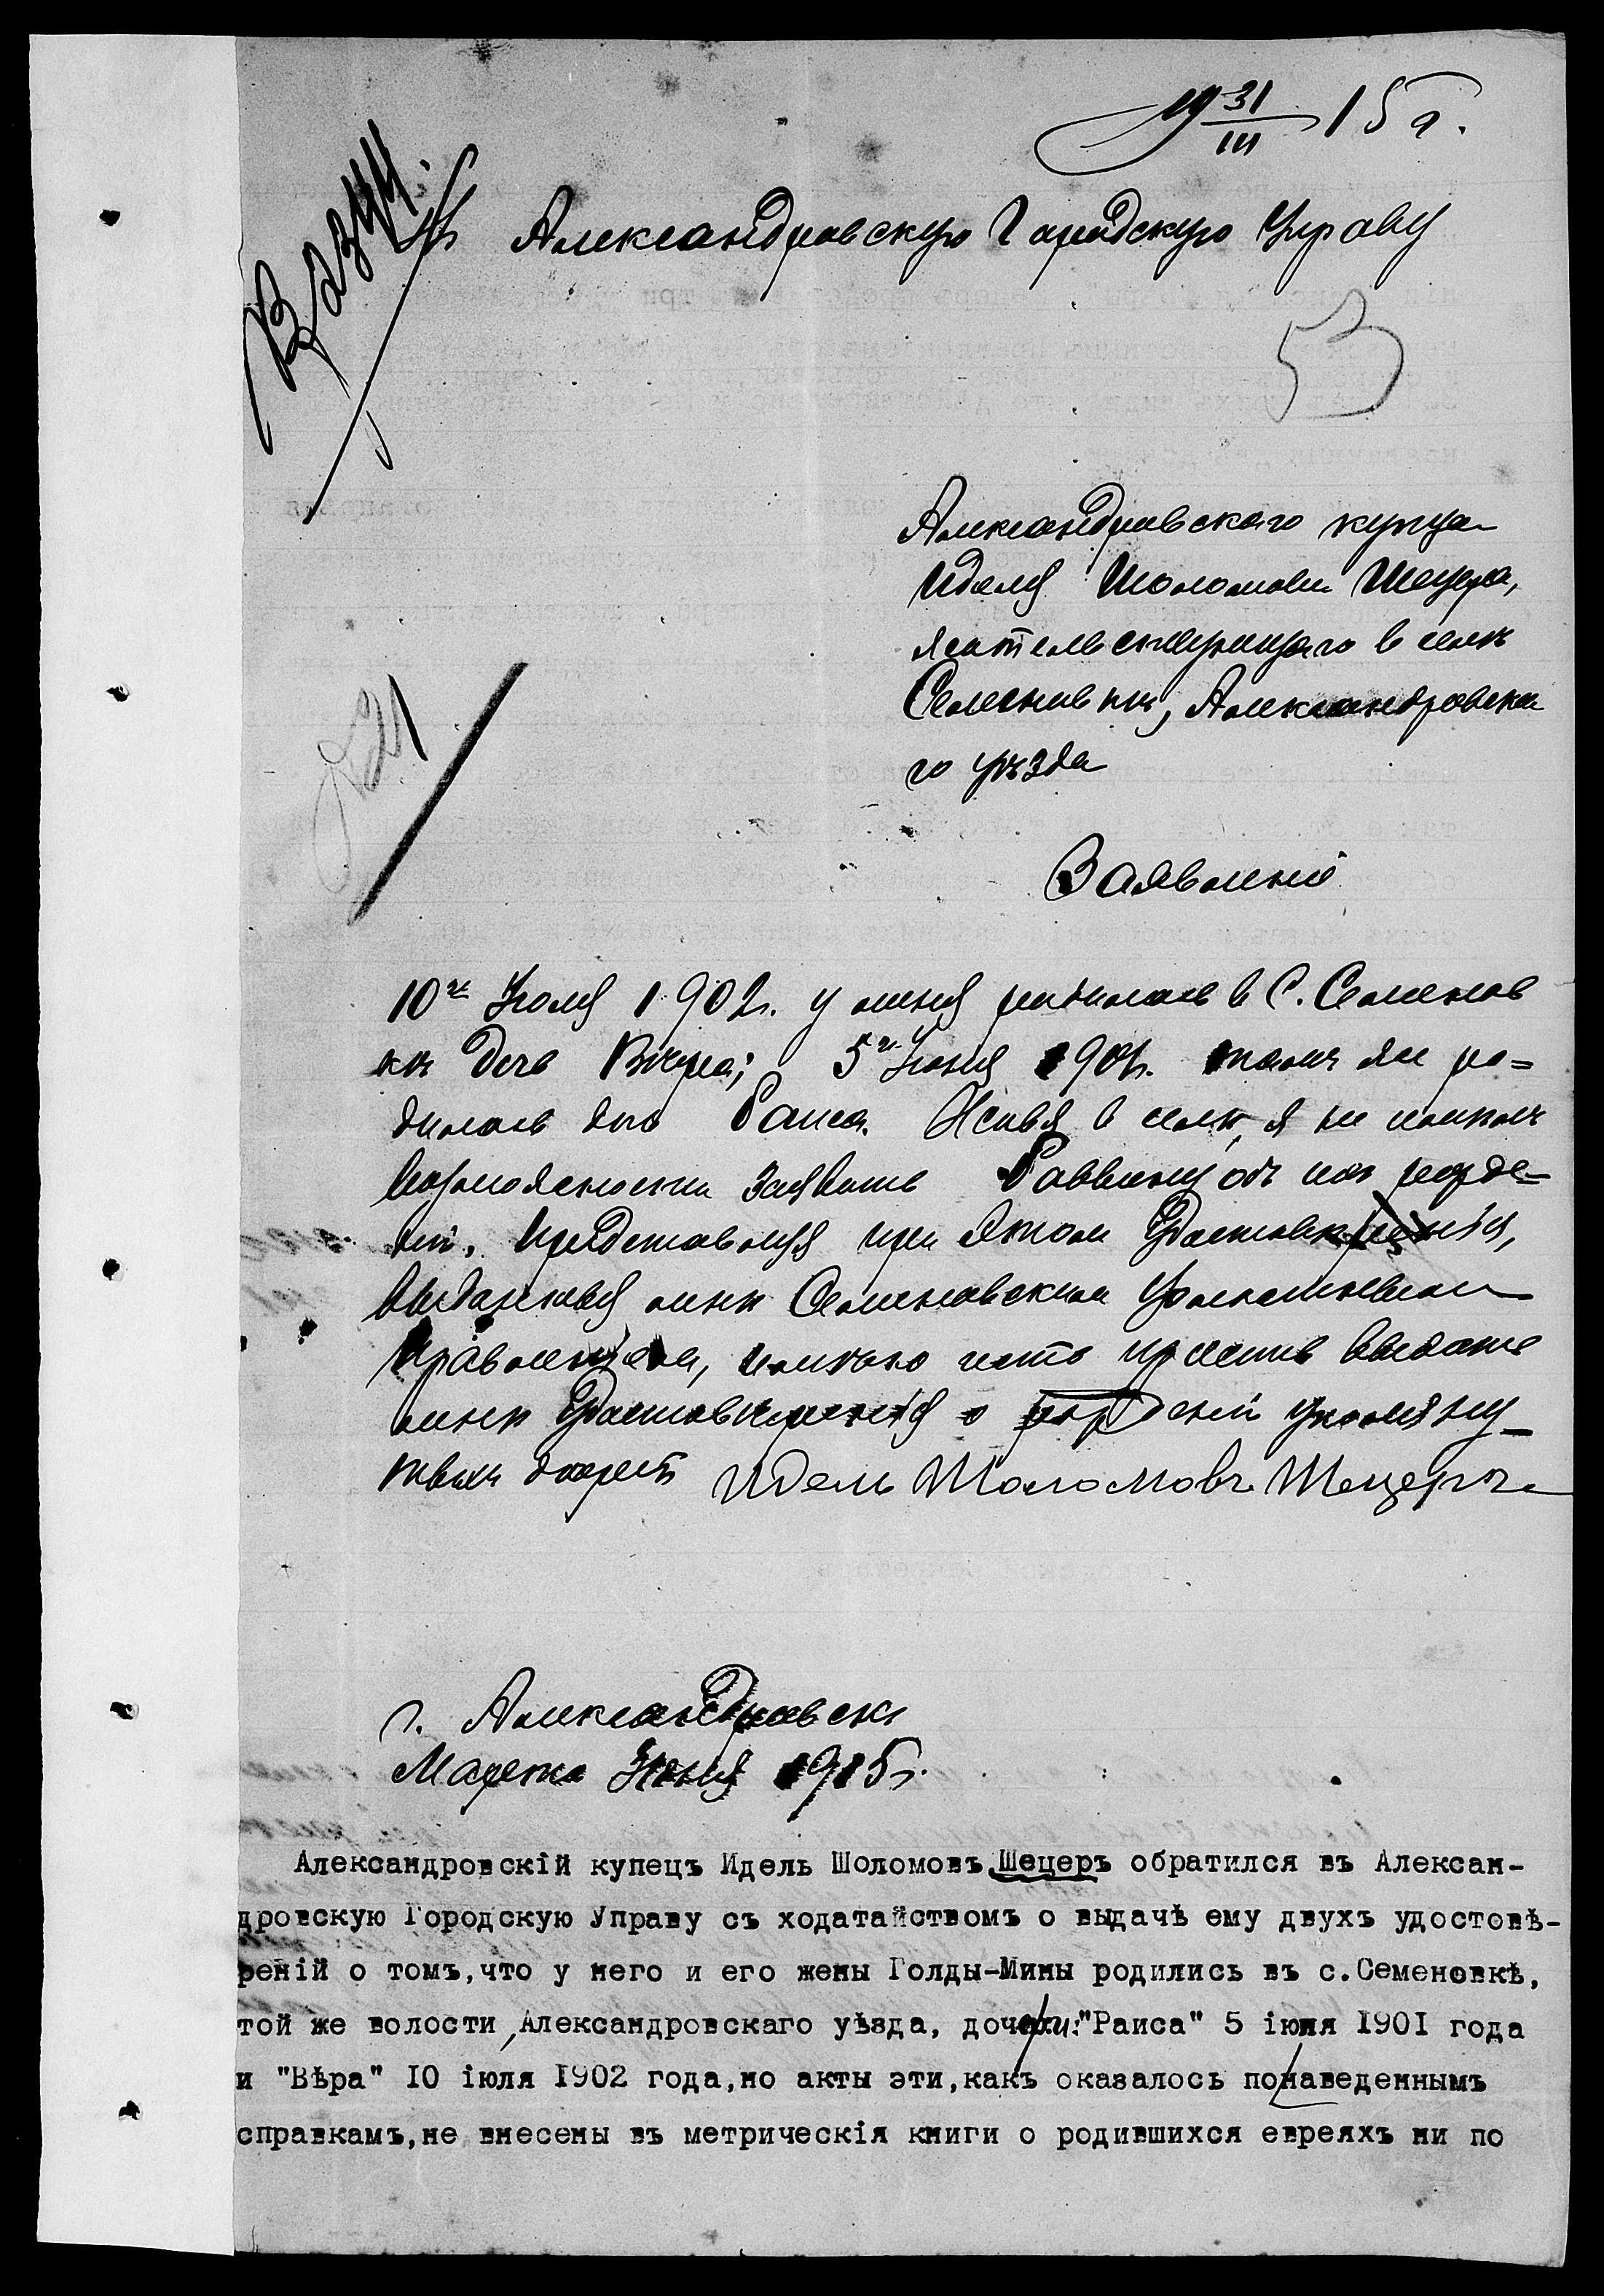 19 31/III 15 г.
Въ Александровскую Городскую Управу
53
Александровскаго купца
Иделя Шоломова Шецера,
жительствующаго в селѣ
Семеновкѣ, Александровска
го уѣзда
Заявленіе
10го Іюля 1902г. у меня родилась в С. Семенов
кѣ дочь Вѣра; 5го Іюня 1901г. тамъ же ро=
дилась дочь Раиса. Живя в селѣ, я не имѣлъ
возможности заявить Раввину объ ихъ рожде-
ніи. Представляя при этом Удостовѣренія,
выданныя мнѣ Семеновским Волостным
Правленіем, имѣю честь просить выдать
мнѣ Удостовѣренія о рожденіи упомяну-
тыхъ дочерей Идель Шоломовъ Шецеръ
г. Александровск
Марта Іюня 1915г.
Александровскій купецъ Идель Шоломовъ Шецеръ обратился въ Алексан-
дровскую Городскую Управу съ ходатайствомъ о выдачѣ ему двухъ удостовѣ-
реній о томъ,что у него и его жены Голды-Мины родились въ с.Семеновкѣ,
той же волости, Александровскаго уѣзда, дочери:"Раиса" 5 іюня 1901 года
и "Вѣра" 10 іюля 1902 года,но акты эти,какъ оказалось по наведеннымъ
справкамъ,не внесены въ метрическія книги о родившихся евреяхъ ни по